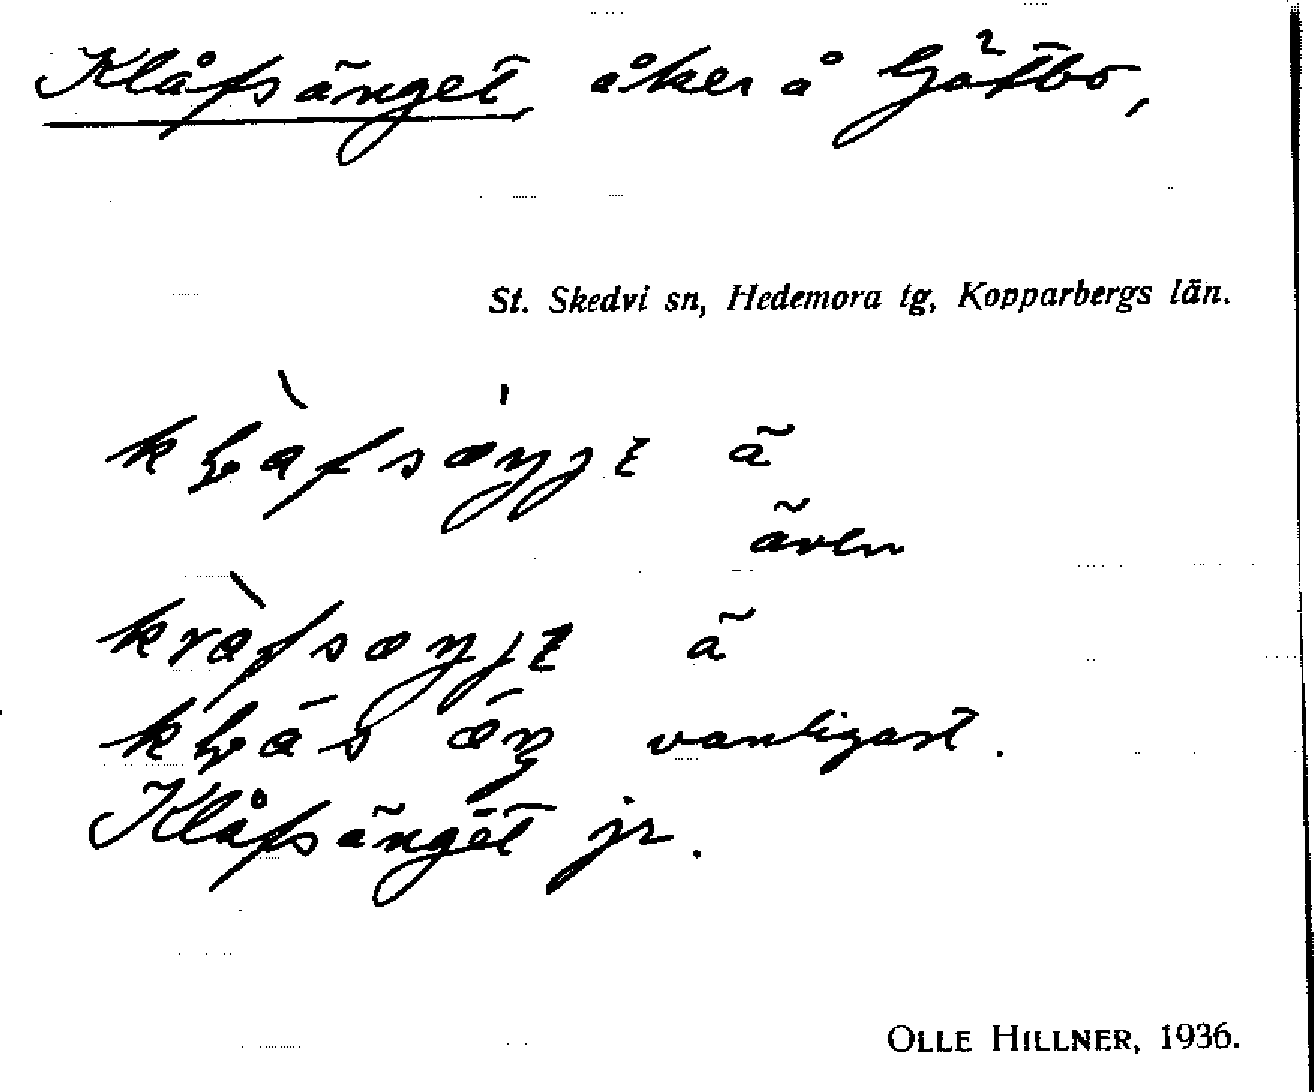 Klåfsänget, åker å Gåtbo,
St. Skedvi sn, Hedemora tg, Kopparbergs län.
kḷàfsæŋjt ä
även
kràfsæŋjt ä
vanligast.
Klåfsänget jr.
OLLE HILLNER, 1936.